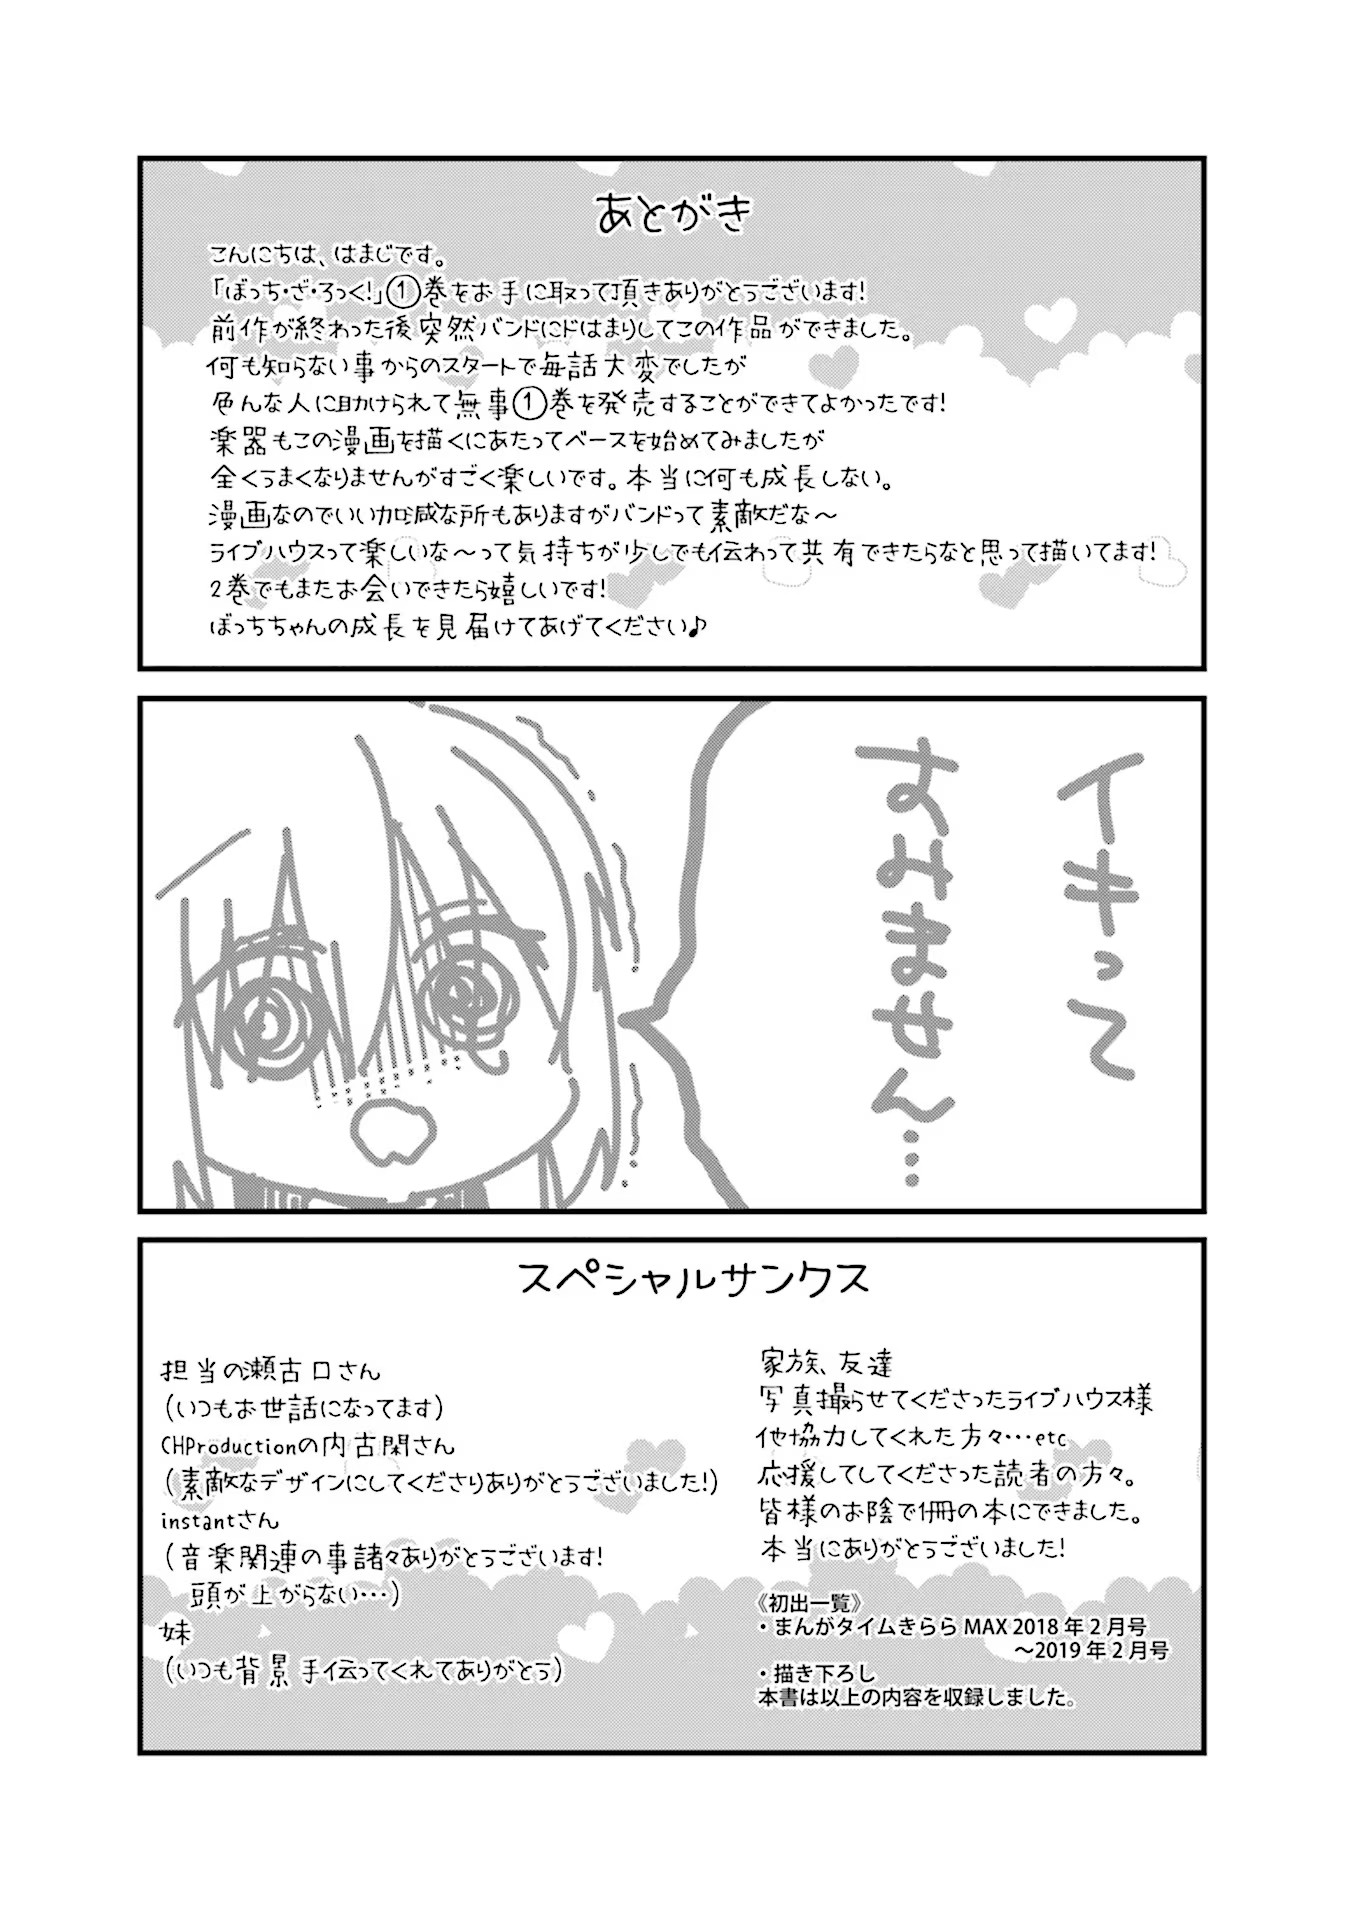 あとがき
こんにちは、はまじです。
「ぼっち・ざ・ろっく!」①巻をお手に取って頂きありがとうございます!
前作が終わった後突然バンドにドはまりしてこの作品ができました。
何も知らない事からのスタートで毎話大変でしたが
色んな人に助けられて無事①巻を発売することができてよかったです!
楽器もこの漫画を描くにあたってベースを始めてみましたが
全くうまくなりませんがすごく楽しいです。本当に何も成長しない。
漫画なのでいい加減な所もありますがバンドって素敵だな〜
ライブハウスって楽しいな〜って気持ちが少しでも伝わって共有できたらなと思って描いてます!
2巻でもまたお会いできたら嬉しいです!
ぼっちちゃんの成長を見届けてあげてください♪
イキって
すみません…
スペシャルサンクス
担当の瀬古口さん
(いつもお世話になってます)
CHProductionの内古閑さん
(素敵なデザインにしてくださりありがとうございました!)
instantさん
(音楽関連の事諸々ありがとうございます!
頭が上がらない…)
妹
(いつも背景手伝ってくれてありがとう)
家族、友達
写真撮らせてくださったライブハウス様
他協力してくれた方々…etc
応援してしてくださった読者の方々。
皆様のお陰で1冊の本にできました。
本当にありがとうございました!
《初出一覧》
・まんがタイムきららMAX 2018年2月号
〜2019年2月号
・描き下ろし
本書は以上の内容を収録しました。